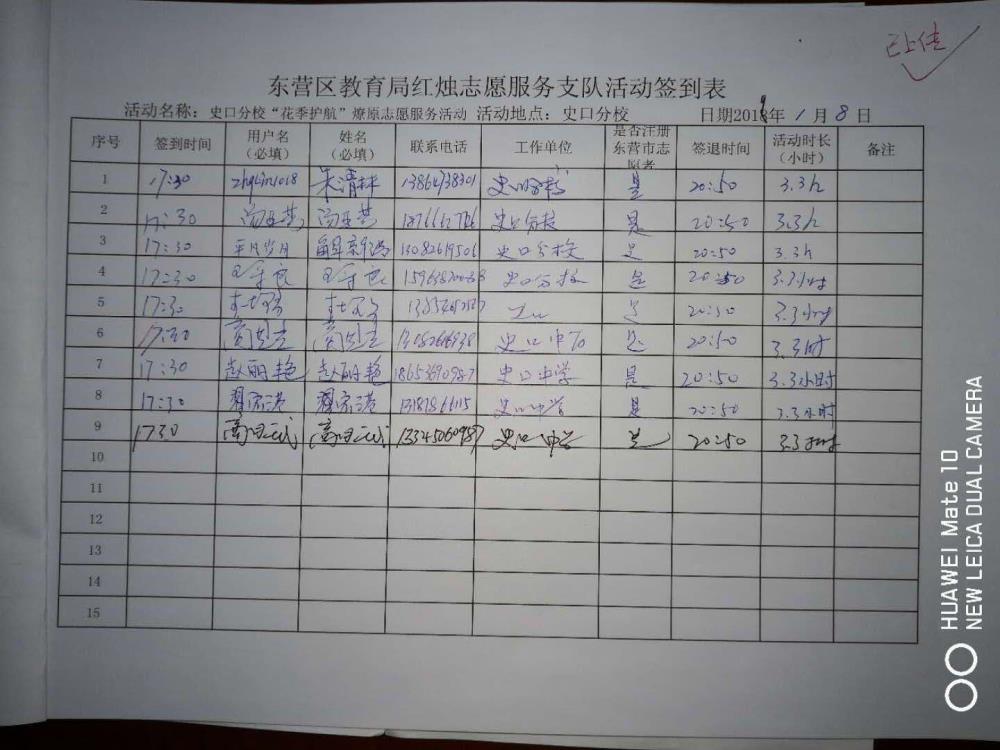 已上传
东营区教育局红烛志愿服务支队活动签到表
活动名称：史口分校“花季护航”燎原志愿服务活动 活动地点：史口分校 日期2019年1月8日
序号 签到时间 用户名（必填） 姓名（必填） 联系电话 工作单位 是否注册东营市志愿者 签退时间 活动时长（小时） 备注
1 17:30 zhqlin1018 朱清林 13864738301 史口分校 是 20:50 3.3h
2 17:30 史口分校 是 20:50 3.3h
3 17:30 平凡岁月 13082619506 史口分校 是 20:50 3.3h
4 17:30 史口分校 是 20:50 3.3小时
5 17:30 是 20:50 3.3小时
6 17:30 史口中学 是 20:50 3.3时
7 17:30 赵丽艳 赵丽艳 18653690987 史口中学 是 20:50 3.3小时
8 17:30 13181866115 史口中学 是 20:50 3.3小时
9 17:30 13345060987 史口中学 是 20:50 3.3小时
10
11
12
13
14
15
HUAWEI Mate 10
NEW LEICA DUAL CAMERA